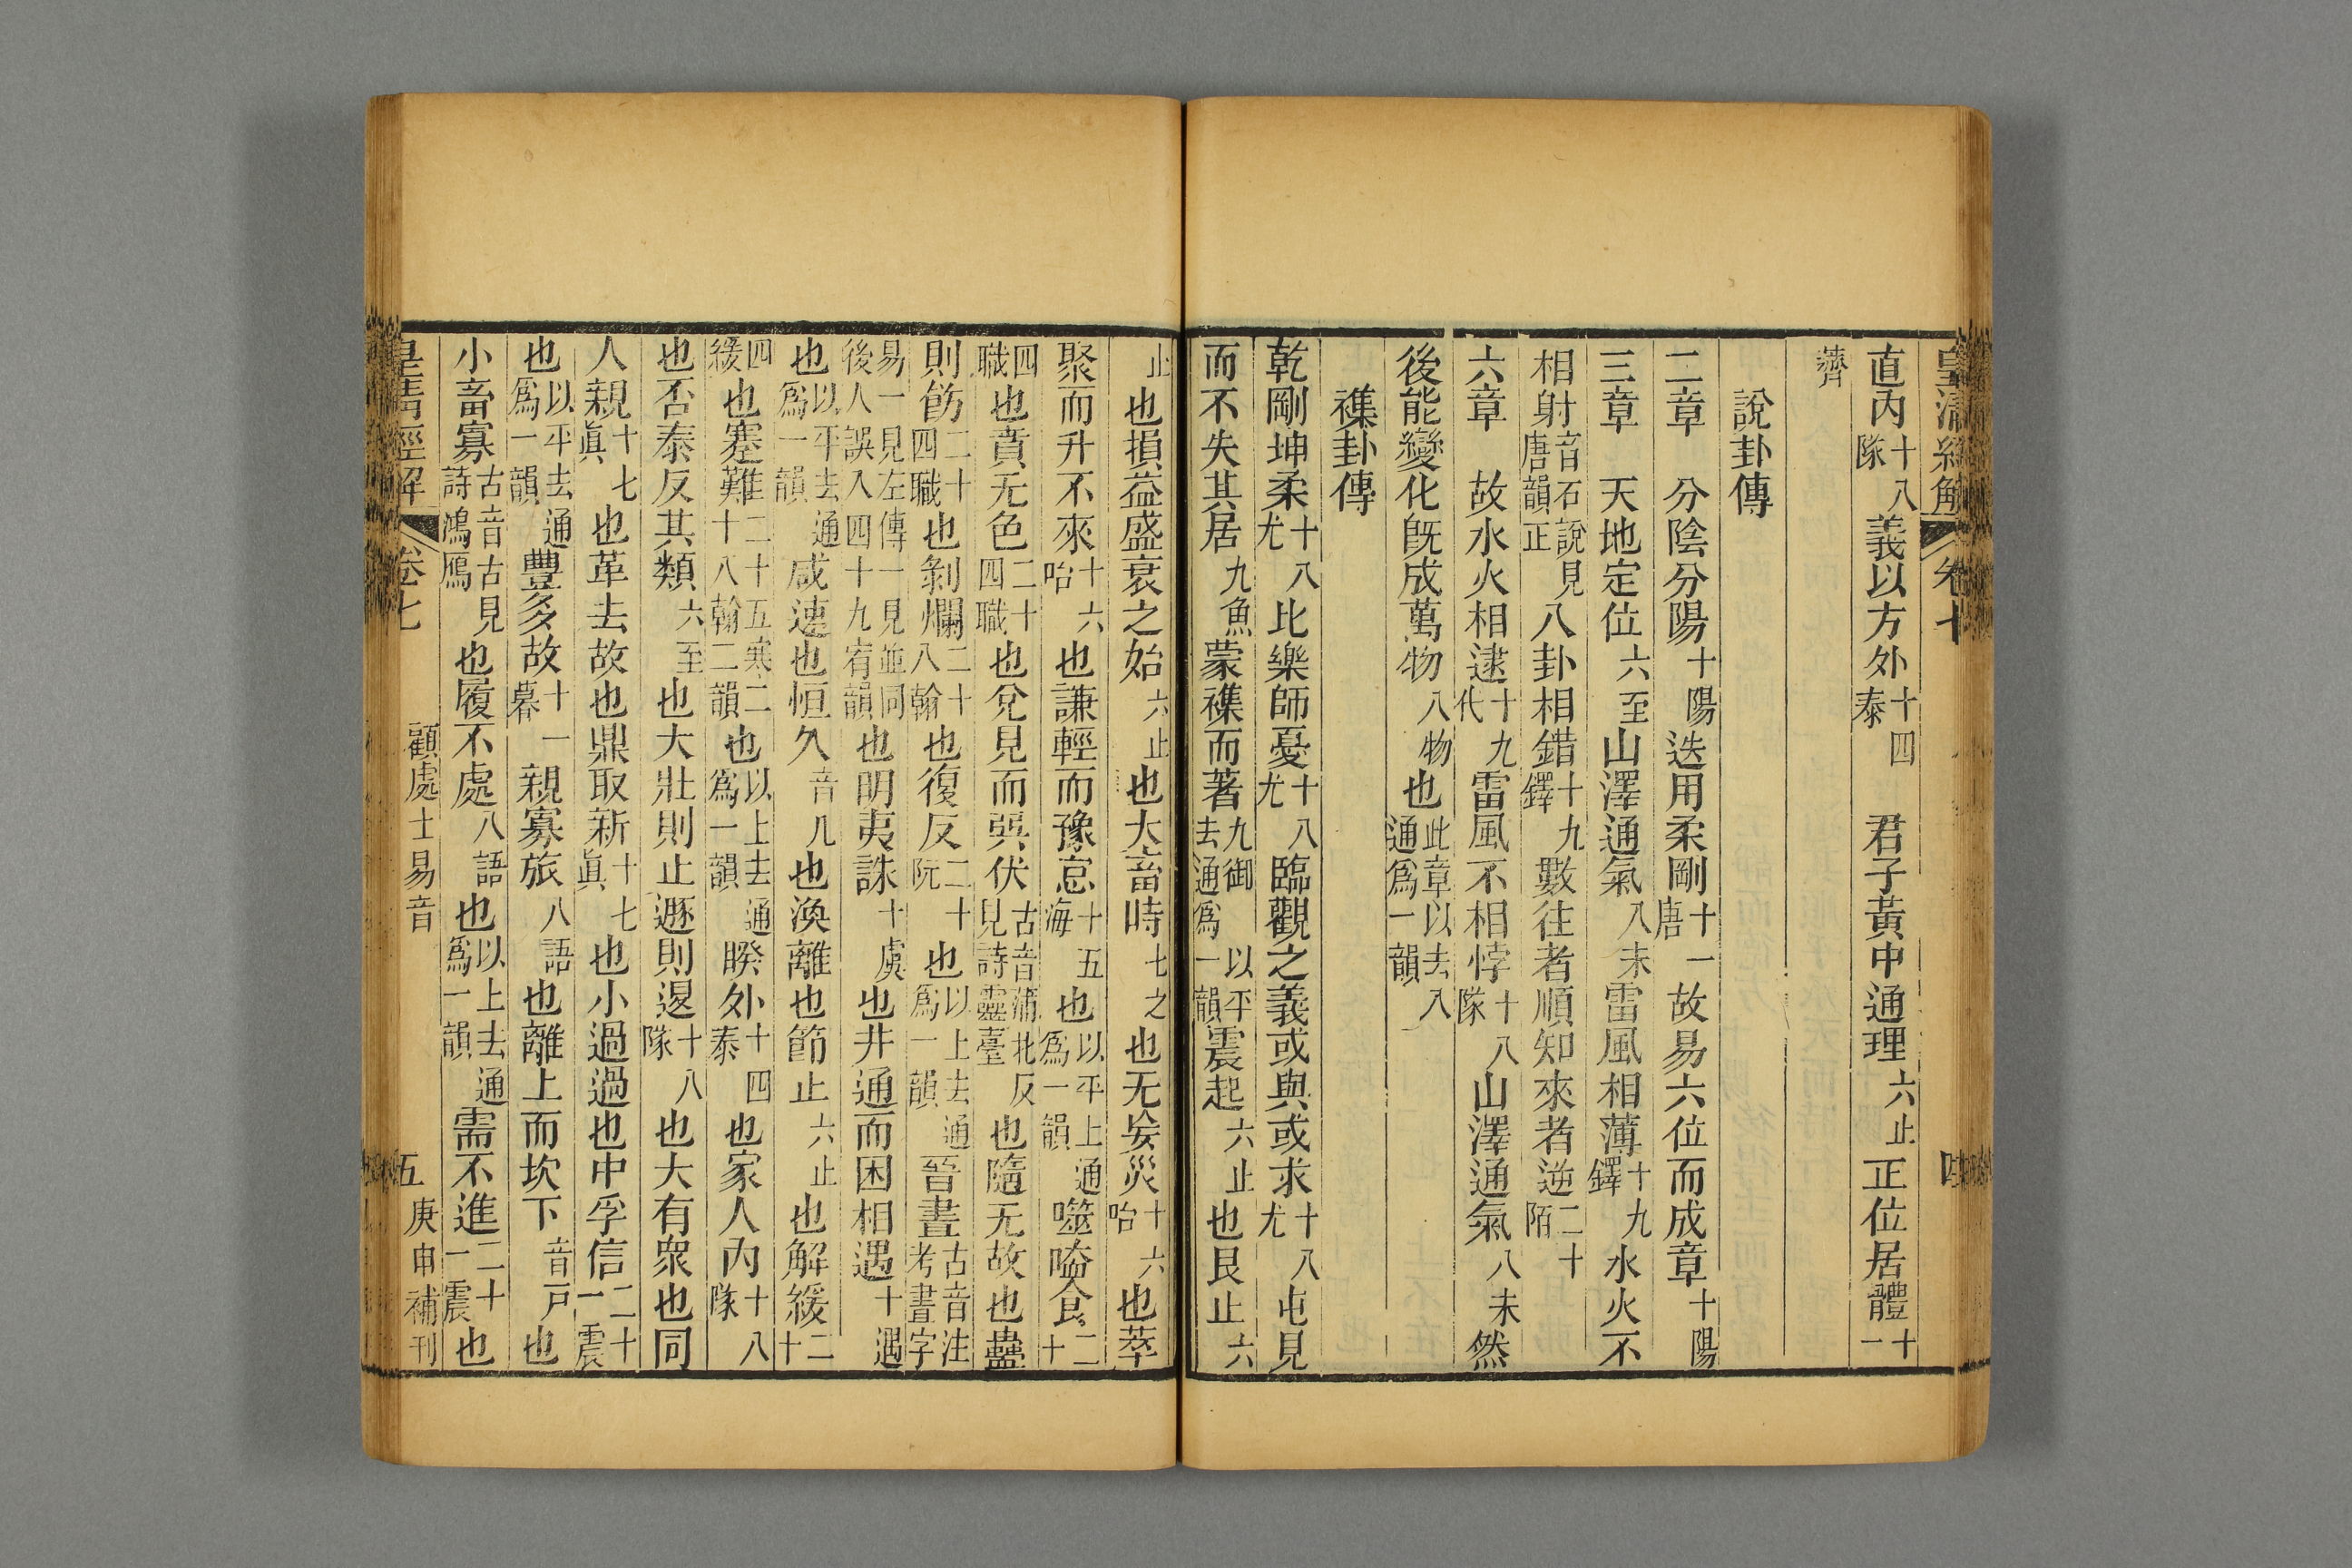 皇清經解 卷七 四
直內十八隊義以方外十四泰 君子黃中通理六止正位居體十一
薺
說卦傳
二章 分陰分陽十陽迭用柔剛十一唐故易六位而成章十陽
三章 天地定位六至山澤通氣八未雷風相薄十九鐸水火不
相射音石說見唐韻正八卦相錯十九鐸數往者順知來者逆二十陌
六章 故水火相逮十九代雷風不相悖十八隊山澤通氣八未然
後能變化旣成萬物八物也此章以去入通爲一韻
襍卦傳
乾剛坤柔十八尤比樂師憂十八尤臨觀之義或與或求十八尤屯見
而不失其居九魚蒙襍而著九御以平去通爲一韻震起六止也艮止六
止也損益盛衰之始六止也大畜時七之也无妄災十六咍也萃
聚而升不來十六咍也謙輕而豫怠十五海也以平上通爲一韻噬嗑食二十
四職也賁无色二十四職也兌見而巽伏古音蒲北反見詩靈臺也隨无故也蠱
則飭二十四職也剝爛二十八翰也復反二十阮也以上去通爲一韻晉晝古音注考晝字
易一見左傳一見並同後人誤入四十九宥韻也明夷誅十虞也井通而困相遇十遇
也以平去通爲一韻咸速也恒久音几也渙離也節止六止也解緩二十
四緩也蹇難二十五寒二十八翰二韻也以上去通爲一韻睽外十四泰也家人內十八隊
也否泰反其類六至也大壯則止遯則退十八隊也大有衆也同
人親十七眞也革去故也鼎取新十七眞也小過過也中孚信二十一震
也以平去通爲一韻豐多故十一暮親寡旅八語也離上而坎下音戶也
小畜寡古音古見詩鴻鴈也履不處八語也以上去通爲一韻需不進二十一震也
皇清經解 卷七 顧處士易音 五 庚申補刊